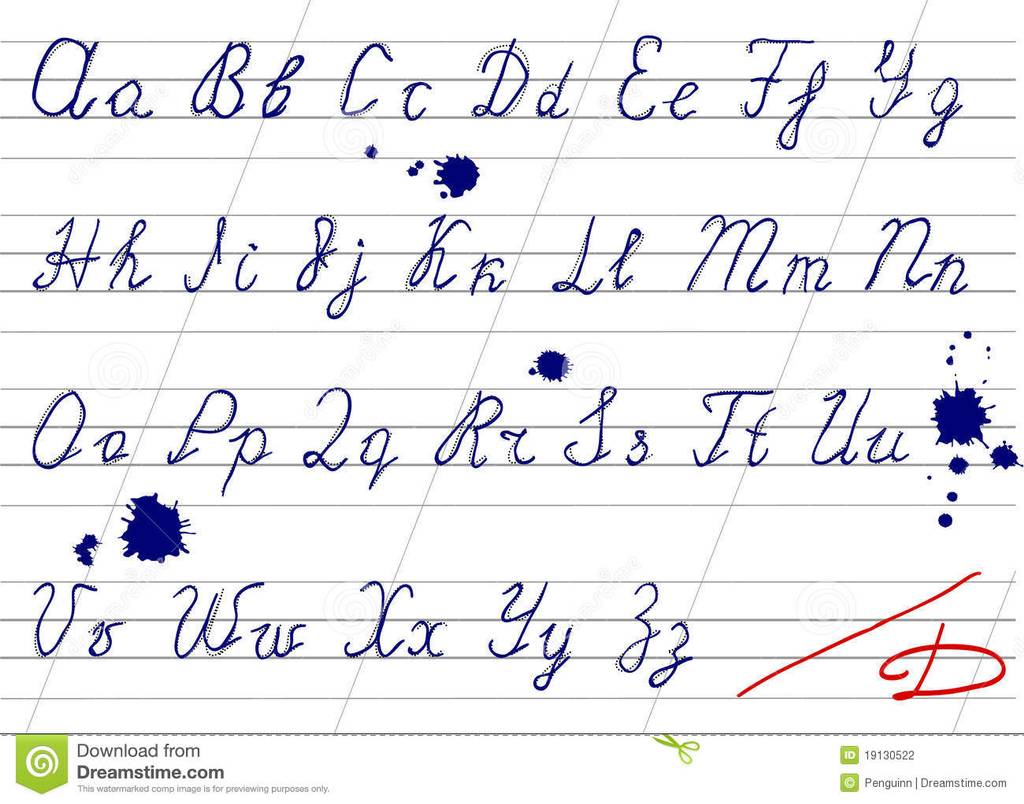 Aa Bb Cc Dd Ee Ff Gg
Hh Ii Jj Kk Ll Mm Nn
Oo Pp Qq Rr Ss Tt Uu
Vv Ww Xx Yy Zz D
Download from
Dreamstime.com
This watermarked comp image is for previewing purposes only.
ID 19130522
© Penguinn | Dreamstime.com